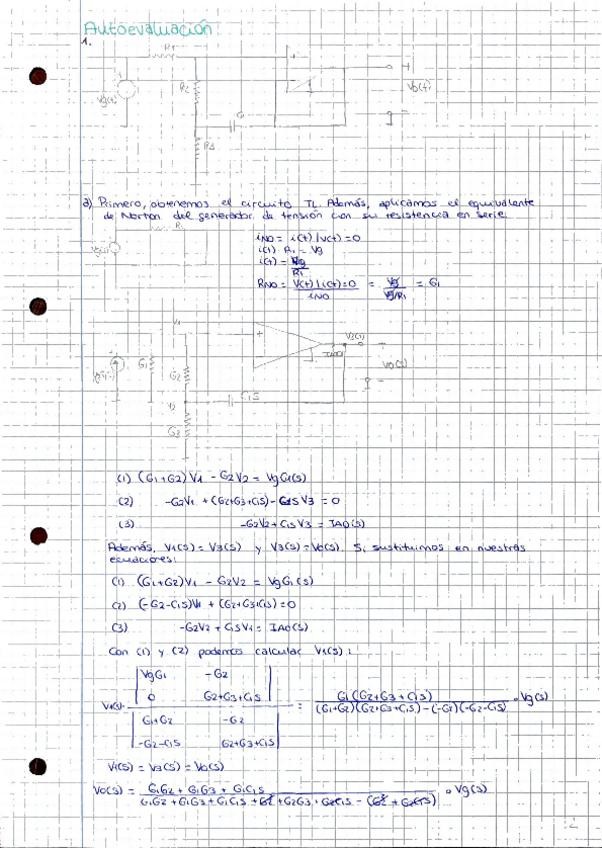 Autoevaluación
1.
R1
R2
R3
Vg(t)
C1
Vo(t)
a) Primero, obtenemos el circuito TL. Además, aplicamos el equivalente
de Norton del generador de tensión con su resistencia en serie.
iNO = i(t) | v(t)=0
i(t) · R1 = Vg
i(t) = Vg/R1
RNO = V(t) | i(t)=0 / iNO = Vg / Vg/R1 = G1
V1
V3(s)
IAO
G1
G2
V2
C1S
G3
Vo(s)
(1) (G1+G2)V1 - G2V2 = VgG1(s)
(2) -G2V1 + (G2+G3+C1S) - C1S V3 = 0
(3) -G2V2 + C1S V3 = IAO(s)
Además, V1(s) = V3(s) y V3(s) = Vo(s). Si sustituimos en nuestras
ecuaciones:
(1) (G1+G2)V1 - G2V2 = VgG1(s)
(2) (-G2-C1S)V1 + (G2+G3+C1S) = 0
(3) -G2V2 + C1SV1 = IAO(s)
Con (1) y (2) podemos calcular V1(s):
VgG1 -G2
0 G2+G3+C1S
V1(s)= = G1(G2+G3+C1S) / (G1+G2)(G2+G3+C1S)-(-G2)(-G2-C1S) · Vg(s)
G1+G2 -G2
-G2-C1S G2+G3+C1S
V1(s) = V3(s) = Vo(s)
Vo(s) = G1G2 + G1G3 + G1C1S / G1G2 + G1G3 + G1C1S + G2² + G2G3 + G2C1S - (G2² + G2C1S) · Vg(s)